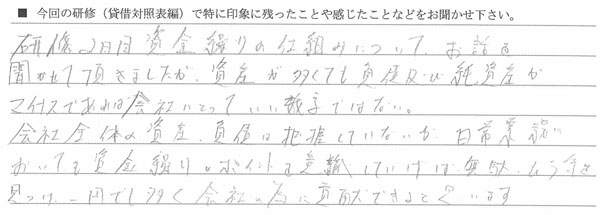 ■ 今回の研修（貸借対照表編）で特に印象に残ったことや感じたことなどをお聞かせ下さい。
研修2日目 資金繰りの仕組みについて、お話を
聞かせて頂きましたが、資産が多くても負債及び純資産が
マイナスであれば会社にとっていい数字ではない。
会社全体の資産、負債は把握していないが、日常業務に
おいても資金繰りのポイントを意識していけば無駄、ムラを
見つけ、一円でも多く会社の為に貢献できると思います